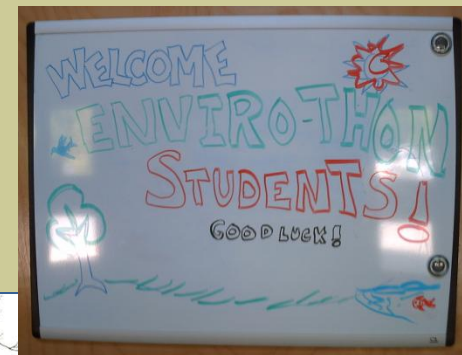 WELCOME
ENVIRO-THON
STUDENTS!
GOOD LUCK!